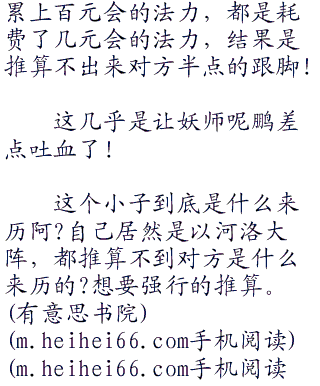 累上百元会的法力，都是耗
费了几元会的法力，结果是
推算不出来对方半点的跟脚！
这几乎是让妖师呢鹏差
点吐血了！
这个小子到底是什么来
历阿？自己居然是以河洛大
阵，都推算不到对方是什么
来历的？想要强行的推算。
(有意思书院)
(m.heihei66.com手机阅读)
(m.heihei66.com手机阅读